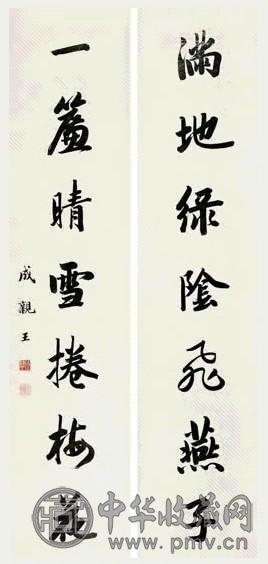 满地绿阴飞燕子
一簾晴雪捲梅花
成親王
中华收藏网
www.pmv.cn